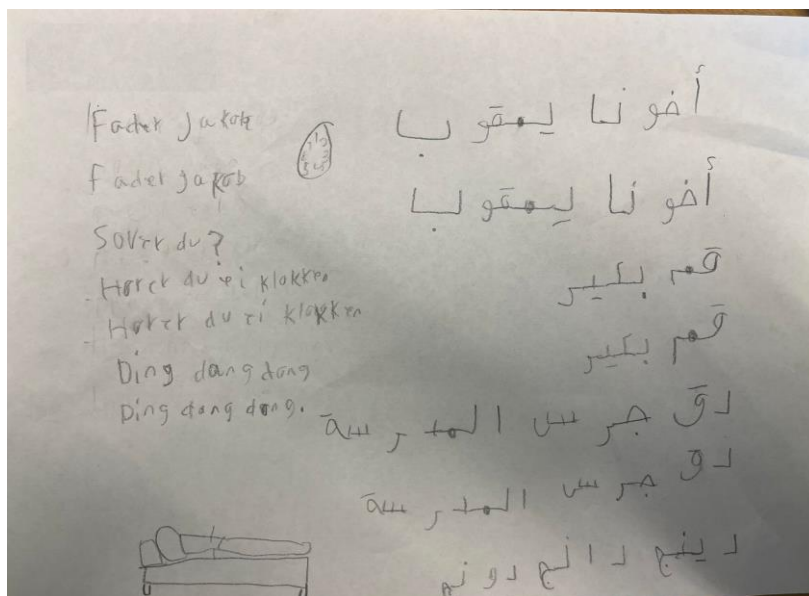 Fader Jakob
Fader Jakob
Sover du?
Hører du ei klokken
Hører du ei klokken
Ding dang dang
Ding dang dong.
أخونا يعقوب
أخونا يعقوب
قم بكير
قم بكير
دق جرس المدرسة
دق جرس المدرسة
دينج دانج دونج